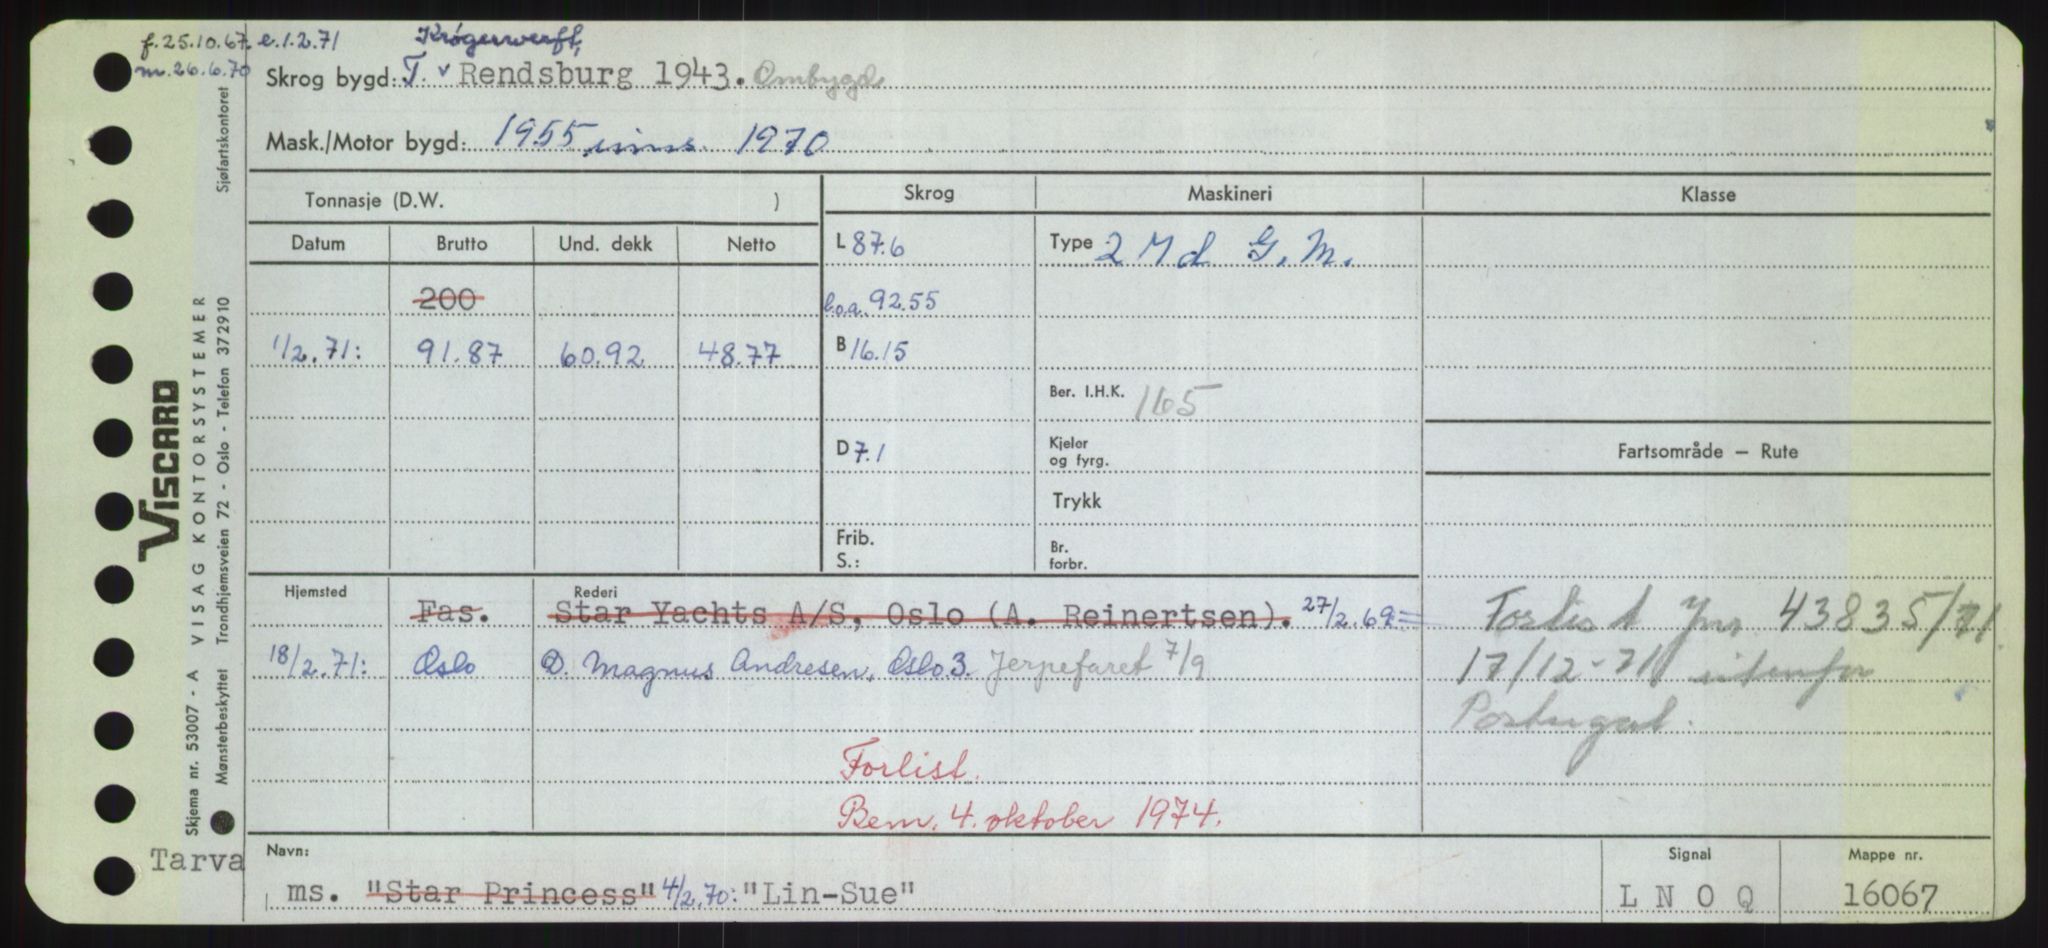 f. 25.10.67. e. 1.2.71
m. 26.6.70
Krøgerwerft,
Skrog bygd: T. v Rendsburg 1943. Ombygd
Mask./Motor bygd: 1955, inns. 1970
Tonnasje (D.W. )
Skrog
Maskineri
Klasse
Datum
Brutto
Und. dekk
Netto
L 87.6
Type 2 M d G. M.
200
l.o.a. 92.55
1/2.71:
91.87
60.92
48.77
B 16.15
Ber. I.H.K. 165
D 7.1
Kjeler
og fyrg.
Fartsområde — Rute
Trykk
Frib.
S.:
Br.
forbr.
Hjemsted
Rederi
Fas.
Star Yachts A/S, Oslo (A. Reinertsen). 27/2.69=
Forlist Jnr 43835/71
18/2.71:
Oslo
D. Magnus Andresen, Oslo 3. Jerpefaret 7/9
17/12-71 utenfor
Portugal.
Forlist.
Bem. 4. oktober 1974.
Tarva
Navn:
ms. "Star Princess" 4/2.70: "Lin-Sue"
Signal
L N O Q
Mappe nr.
16067
VISCARD
Skjema nr. 53007 - A VISAG KONTORSYSTEMER
Mønsterbeskyttet Trondhjemsveien 72 - Oslo - Telefon 372910 Sjøfartskontoret